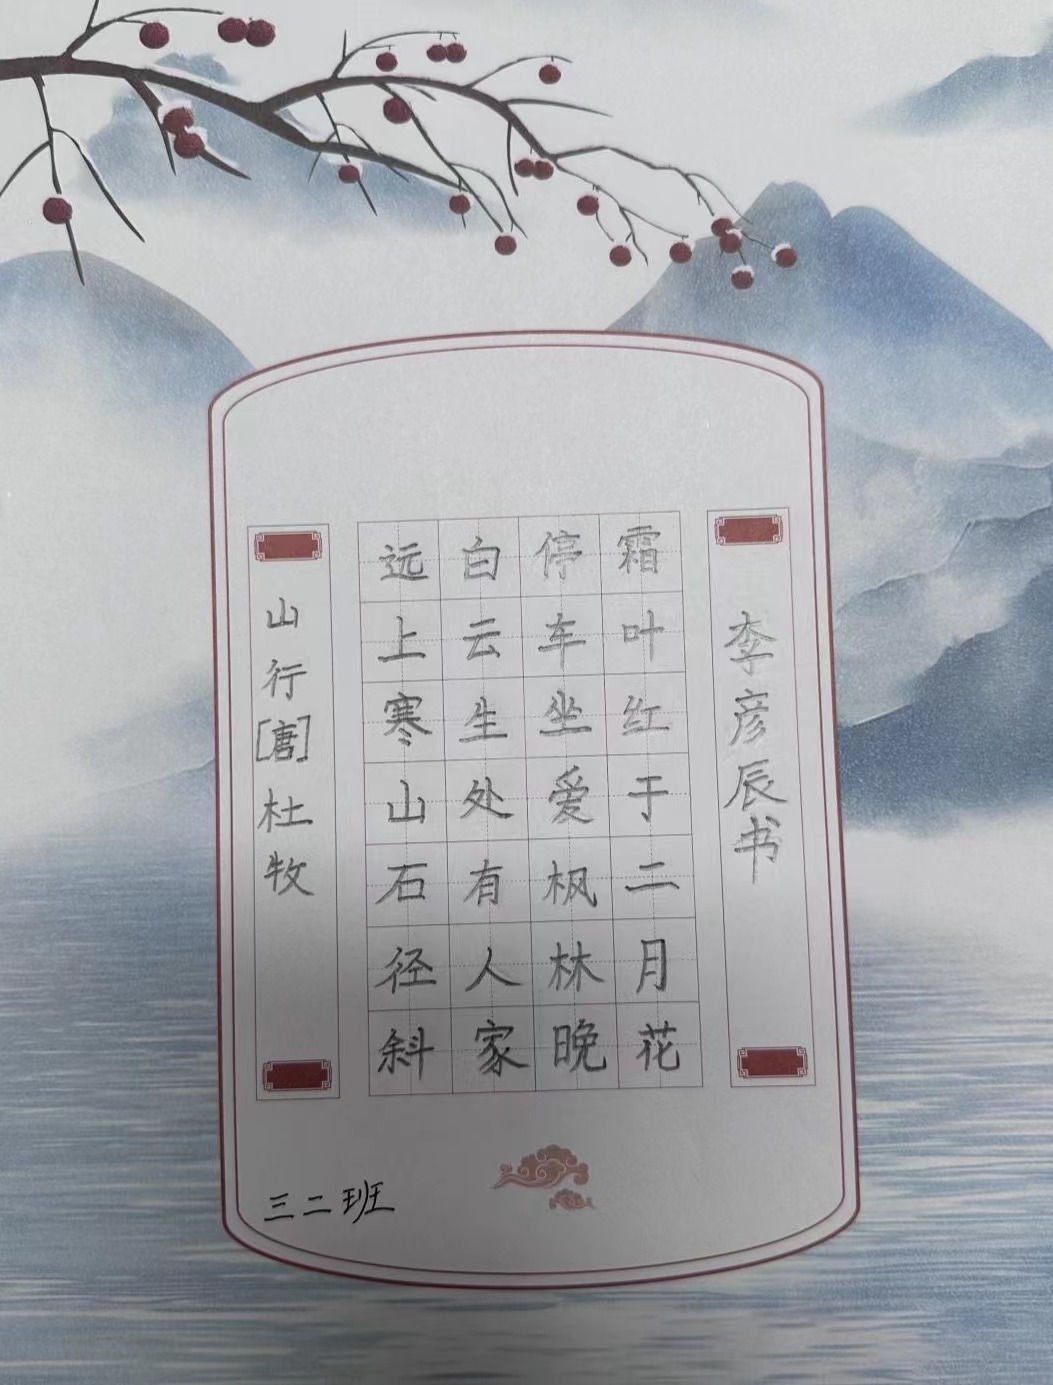 山行[唐]杜牧
远上寒山石径斜
白云生处有人家
停车坐爱枫林晚
霜叶红于二月花
李彦辰书
三二班